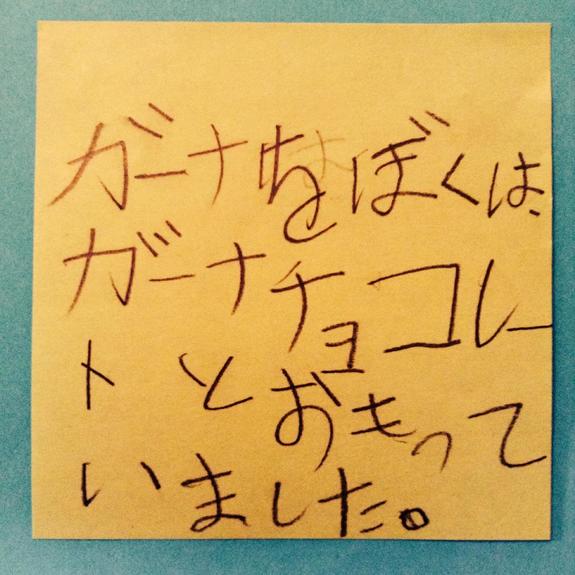 ガーナをぼくは、
ガーナチョコレー
トとおもって
いました。